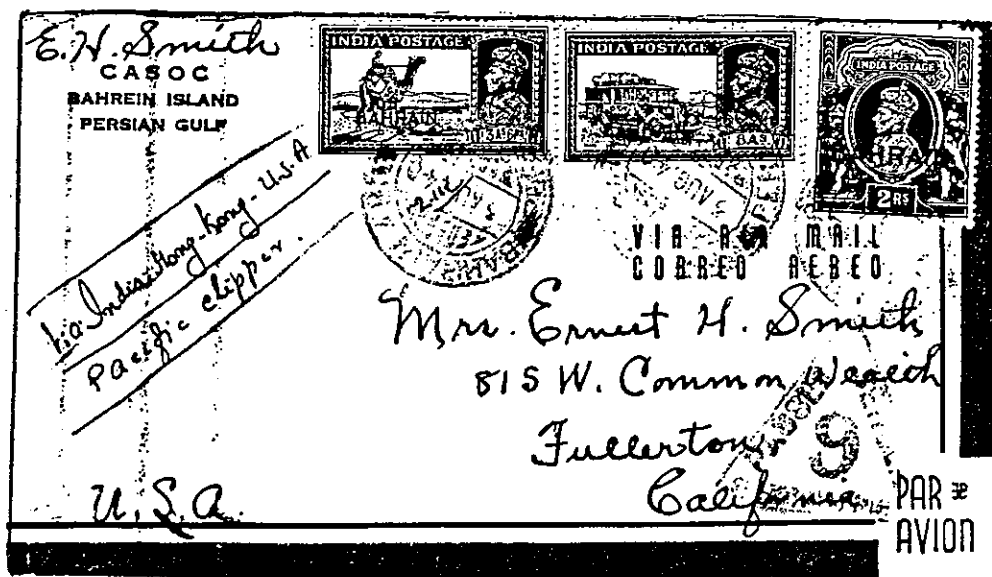 E. H. Smith
CASOC
BAHREIN ISLAND
PERSIAN GULF
INDIA POSTAGE
BAHRAIN
INDIA POSTAGE
8 AS
INDIA POSTAGE
2 RS
via India-Hong-Kong-U.S.A
Pacific clipper.
VIA AIR MAIL
CORREO AEREO
Mrs. Ernest H. Smith
815 W. Common Wealth
Fullerton
California
9
U.S.A.
PAR
AVION